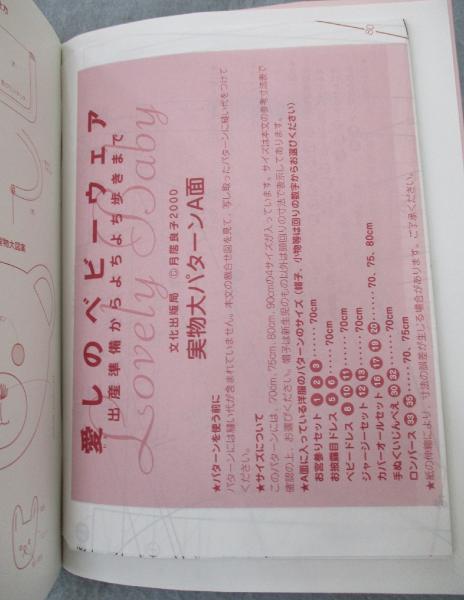 愛しのベビーウェア
出産準備からよちよち歩きまで
Lovely Baby
文化出版局　©月居良子2000
実物大パターンA面
★パターンを使う前に
パターンには縫い代が含まれていません。本文の裁合せ図を見て、写し取ったパターンに縫い代をつけて
ください。
★サイズについて
このパターンには、70cm、75cm、80cm、90cmの4サイズが入っています。サイズは本文の参考寸法表で
確認の上、お選びください。帽子は新生児のもの以外は頭回りの寸法で表示してあります。
★A面に入っている洋服のパターンのサイズ（帽子、小物等は回りの数字からお選びください）
お宮参りセット ❶ ❷ ❸ ‥‥‥ 70cm
お披露目ドレス ❺ ❻ ‥‥‥ 70cm
ベビードレス ❽ ❿ ⓫ ‥‥‥ 70cm
ジャージーセット ⓬ ⓭ ‥‥‥ 70cm
カバーオールセット ⓰ ⓱ ⓲ ⓴ ‥‥‥ 70、75、80cm
手ぬくいじんべえ ㉚ ㉜ ‥‥‥ 70cm
ロンパース ㉝ ㉟ ‥‥‥ 70、75cm
★紙の伸縮により、寸法の誤差が生じる場合があります。ご了承ください。
80
実物大図案